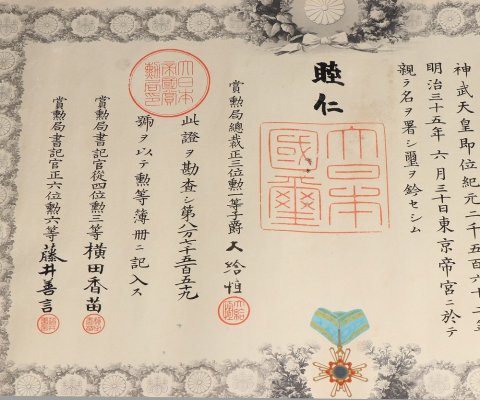 神武天皇即位紀元二千五百六十二年
明治三十五年六月三十日東京帝宮ニ於テ
親ラ名ヲ署シ璽ヲ鈐セシム
睦仁
大日本國璽
賞勲局總裁正三位勲一等子爵大給恒
此證ヲ勘査シ第八万七千五百五十九
號ヲ以テ勲等簿册ニ記入ス
賞勲局書記官從四位勲三等横田香苗
賞勲局書記官正六位勲六等藤井善言